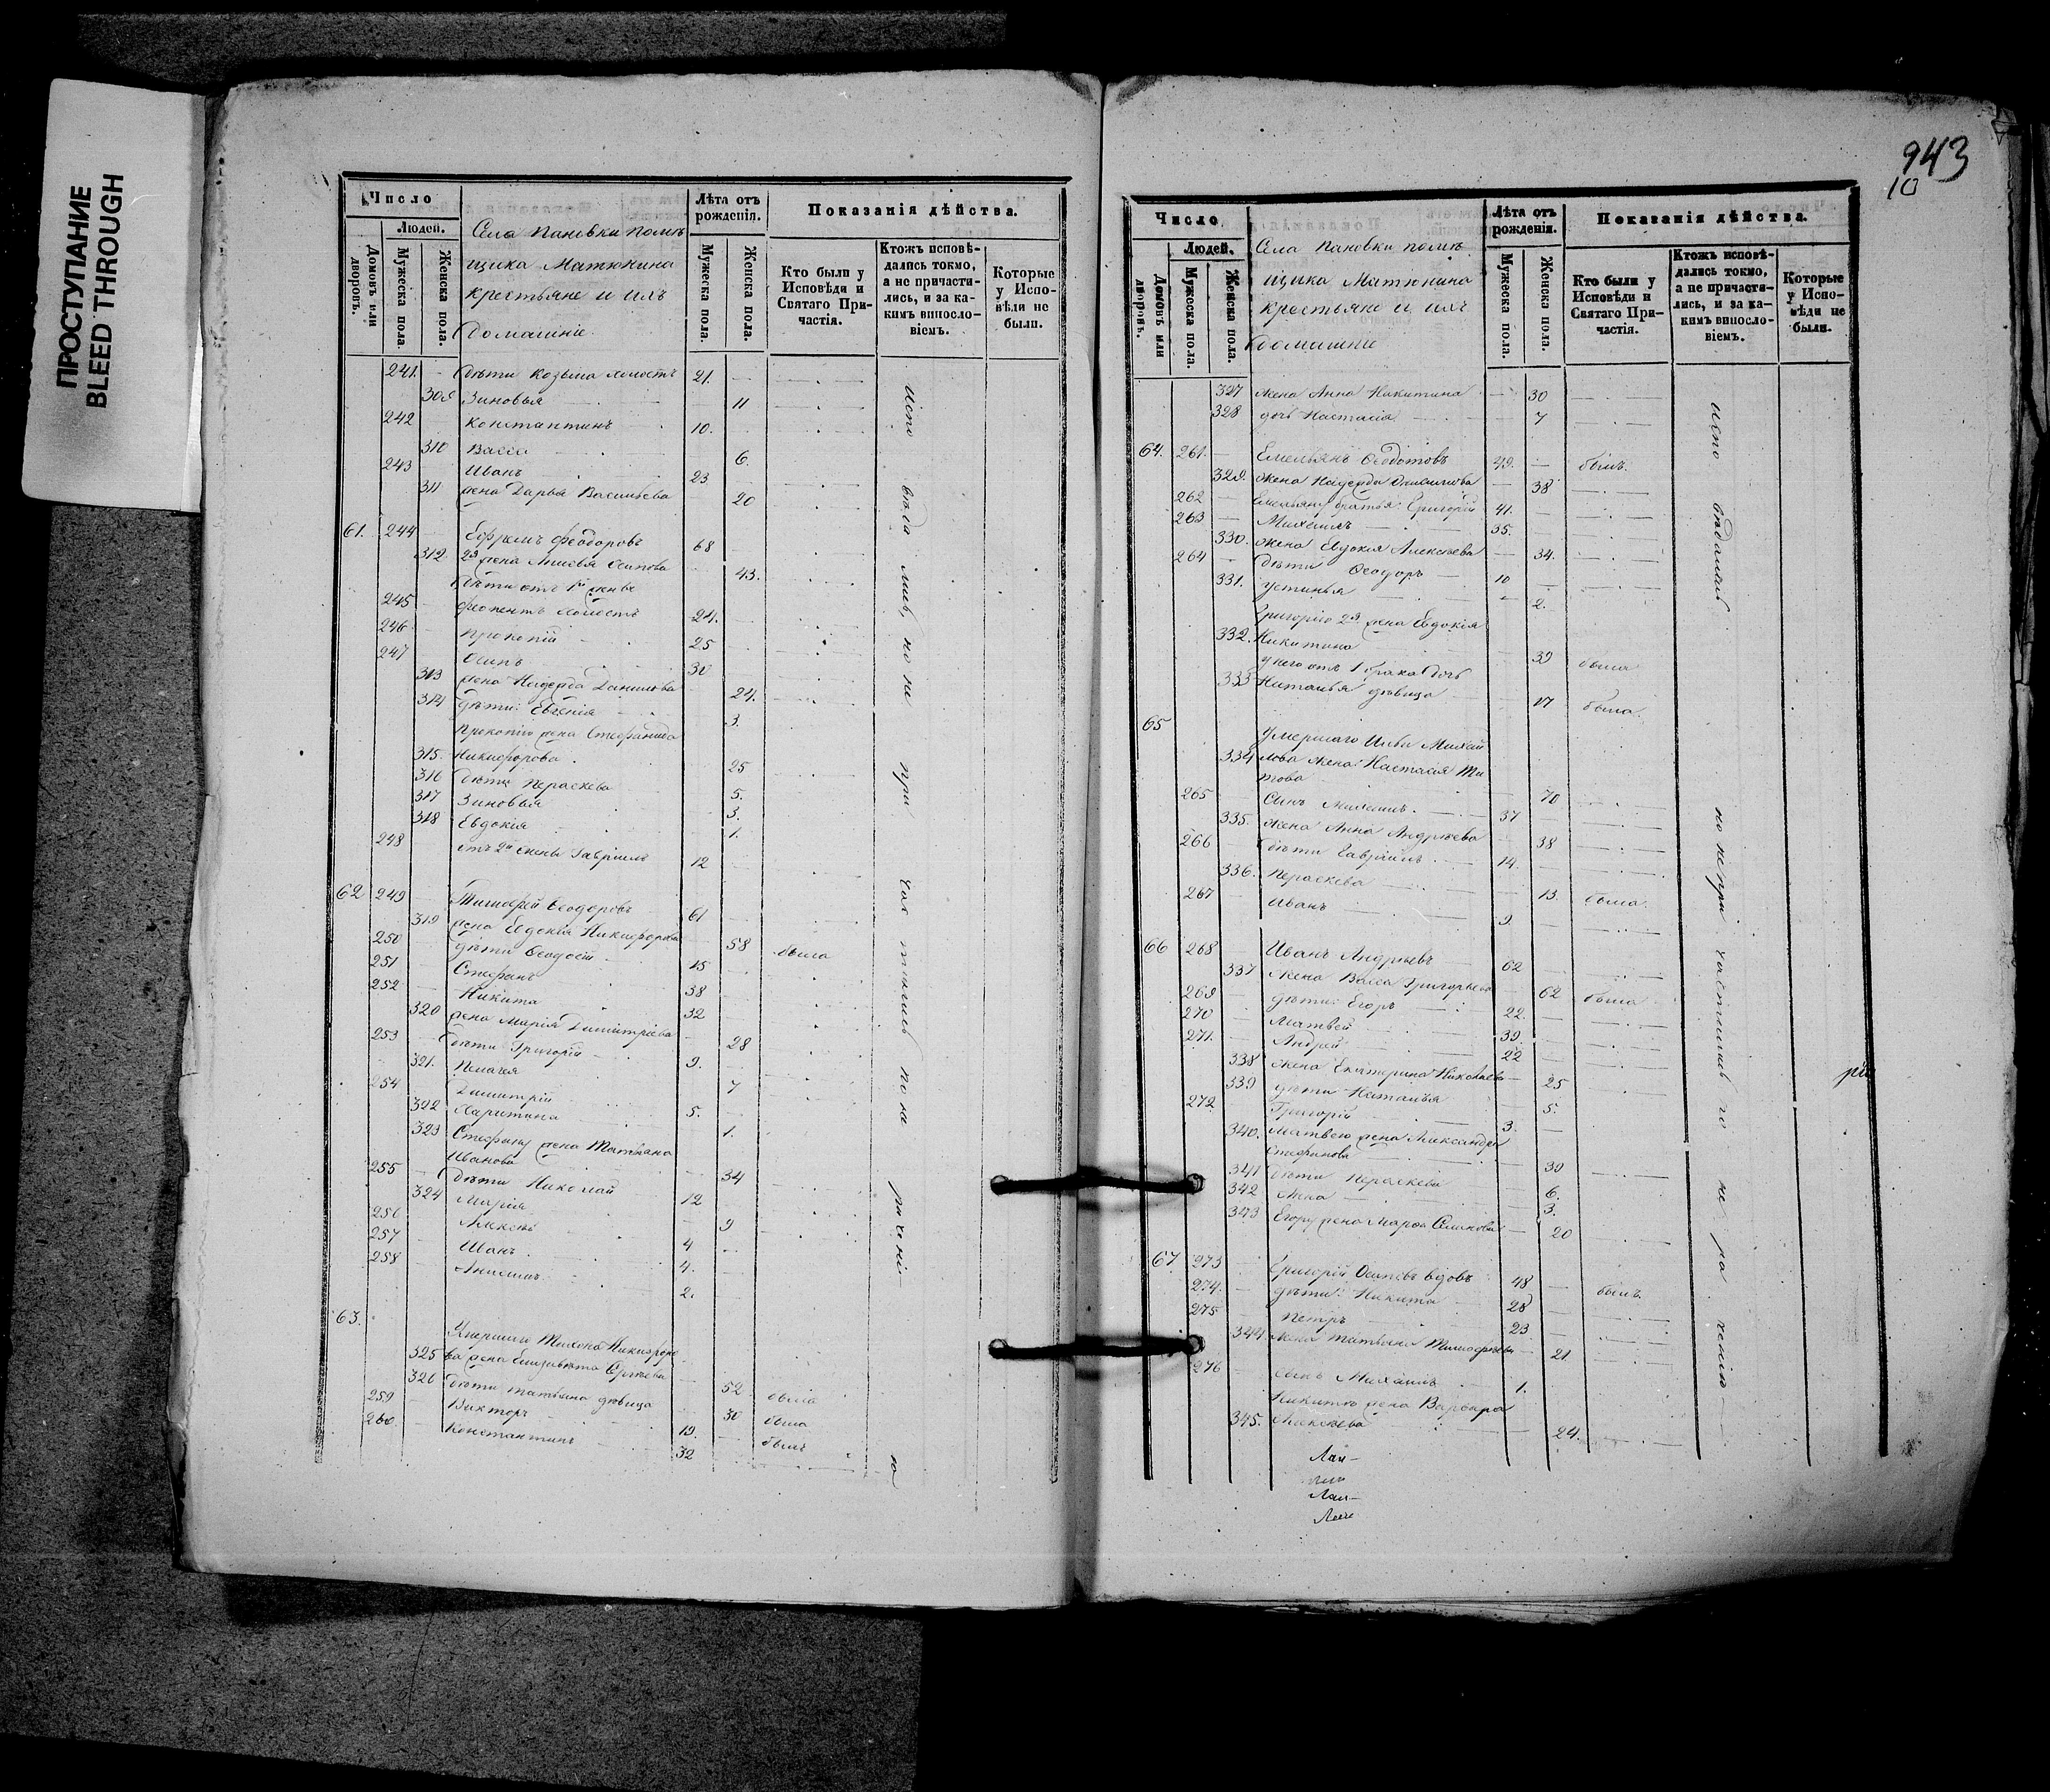 ПРОСТУПАНИЕ
BLEED THROUGH
Число
Людей.
Домовъ или дворовъ.
Мужеска пола.
Женска пола.
Села Пановки помѣ
щика Матюнина
крестьяне и ихъ
домашніе.
Лѣта отъ рожденія.
Мужеска пола.
Женска пола.
Показанія дѣйства.
Кто были у Исповѣди и Святаго Причастія.
Ктожъ исповѣ-
дались токмо,
а не причасти-
лись, и за ка-
кимъ виносло-
віемъ.
Которые
у Испо-
вѣди не
были.
241. дѣти Козьма холостъ 21.
309 Зиновья 11
242 Константинъ 10.
310 Васса 6.
243 Иванъ 23
311 жена Дарья Васильева 20
61. 244 Ефремъ Феодоровъ 68
312 2я жена Анисья Осипова 43.
дѣти отъ 1й жены
245 холостъ 24.
246 Прокопій 25
247 Осипъ 30
313 жена Надежда Данилова 24.
314 дѣти: Евгенія 3.
Прокопію жена Стефанида
315. Никифорова 25
316 дѣти Пераскева 5.
317 Зиновья 3.
318 Евдокія 1.
248 отъ 2й жены Гавріилъ 12
62 249 Тимофей Феодоровъ 61
319 жена Евдокія Никифорова 58 была
250 дѣти Феодосій 15
251 Стефанъ 38
252 Никита 32
320 жена Марія Димитріева 28
253 дѣти Григорій 9.
321. Пелагея 7
254 Димитрій 5.
322 Харитина 1.
323 Стефану жена Татьяна
Иванова 34
255 дѣти Николай 12
324 Марія 9
256 Алексѣй 4
257 Иванъ 4.
258 Анисимъ 2.
63. Умершаго Тихона Никифоро
325 ва жена Елизавета Сергѣева 52 была
326 дѣти Татьяна дѣвица 30 была
259 Викторъ 19. былъ
260 Константинъ 32
943
10
Число
Людей.
Домовъ или дворовъ.
Мужеска пола.
Женска пола.
Села Пановки помѣ
щика Матюнина
крестьяне и ихъ
домашніе
Лѣта отъ рожденія.
Мужеска пола.
Женска пола.
Показанія дѣйства.
Кто были у Исповѣди и Святаго Причастія.
Ктожъ исповѣ-
дались токмо,
а не причасти-
лись, и за ка-
кимъ винослo-
віемъ.
Которые
у Испо-
вѣди не
были.
327 жена Анна Никитина 30
328 дочь Настасія 7
64. 261. Емельянъ Феодотовъ 49. былъ
329. жена Надежда 38
262 Емельяну братья: Григорій 41.
263 Михаилъ 35.
330. жена Евдокія Алексѣева 34.
264 дѣти Феодоръ 10
331. Устинья 2.
Григорію 2я жена Евдокія
332. Никитина 39 была
у него отъ 1 брака дочь
333 Наталья дѣвица 17 была.
65 Умершаго Ильи Михай
334 лова жена Настасія Ти
това 70
265 Сынъ Михаилъ 37
335. жена Анна Андреева 38
266 дѣти Гавріилъ 14.
336. Пераскева 13. была
267 Иванъ 9.
66 268 Иванъ Андреевъ 62
337 жена Васса Григорьева 62 была
269 дѣти: Егоръ 22.
270 Матвей 39
271. Андрей 22
338 жена Екатерина Николаева 25
339 дѣти Наталья 5.
272 Григорій 3
340. Матвею жена Александра
Стефанова 30
341 дѣти Пераскева 6.
342 Анна 3.
343 Егору жена Марфа Семенова 20
67 273 Григорій Осиповъ вдовъ 48 былъ
274. дѣти: Никита 28
275 Петръ 23
344. жена Татьяна Тимофеева 21
276 сынъ Михаилъ 1.
Никитѣ жена Варвара
345. Алексѣева 24.